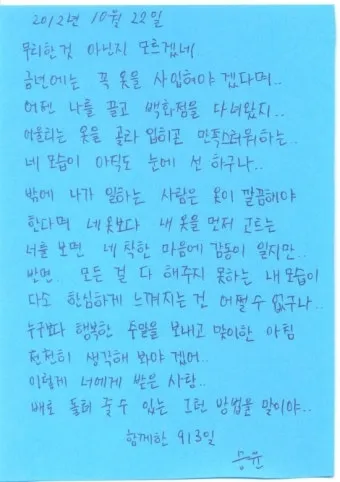 2012년 10월 22일
무리한것 아닌지 모르겠네
금년에는 꼭 옷을 사입혀야 겠다며..
어젠 나를 끌고 백화점을 다녀왔지..
어울리는 옷을 골라 입히고 만족스러워하는..
네 모습이 아직도 눈에 선 하구나..
밖에 나가 일하는 사람은 옷이 깔끔해야
한다며 네옷보다 내 옷을 먼저 고르는
너를 보면 네 착한 마음에 감동이 일지만..
반면.. 모든 걸 다 해주지 못하는 내 모습이
다소 한심하게 느껴지는건 어쩔 수 없구나..
누구보다 행복한 주말을 보내고 맞이한 아침
천천히 생각해 봐야 겠어..
이렇게 너에게 받은 사랑..
배로 돌려 줄 수 있는 그런 방법을 말이야..
함께한 913일
승윤